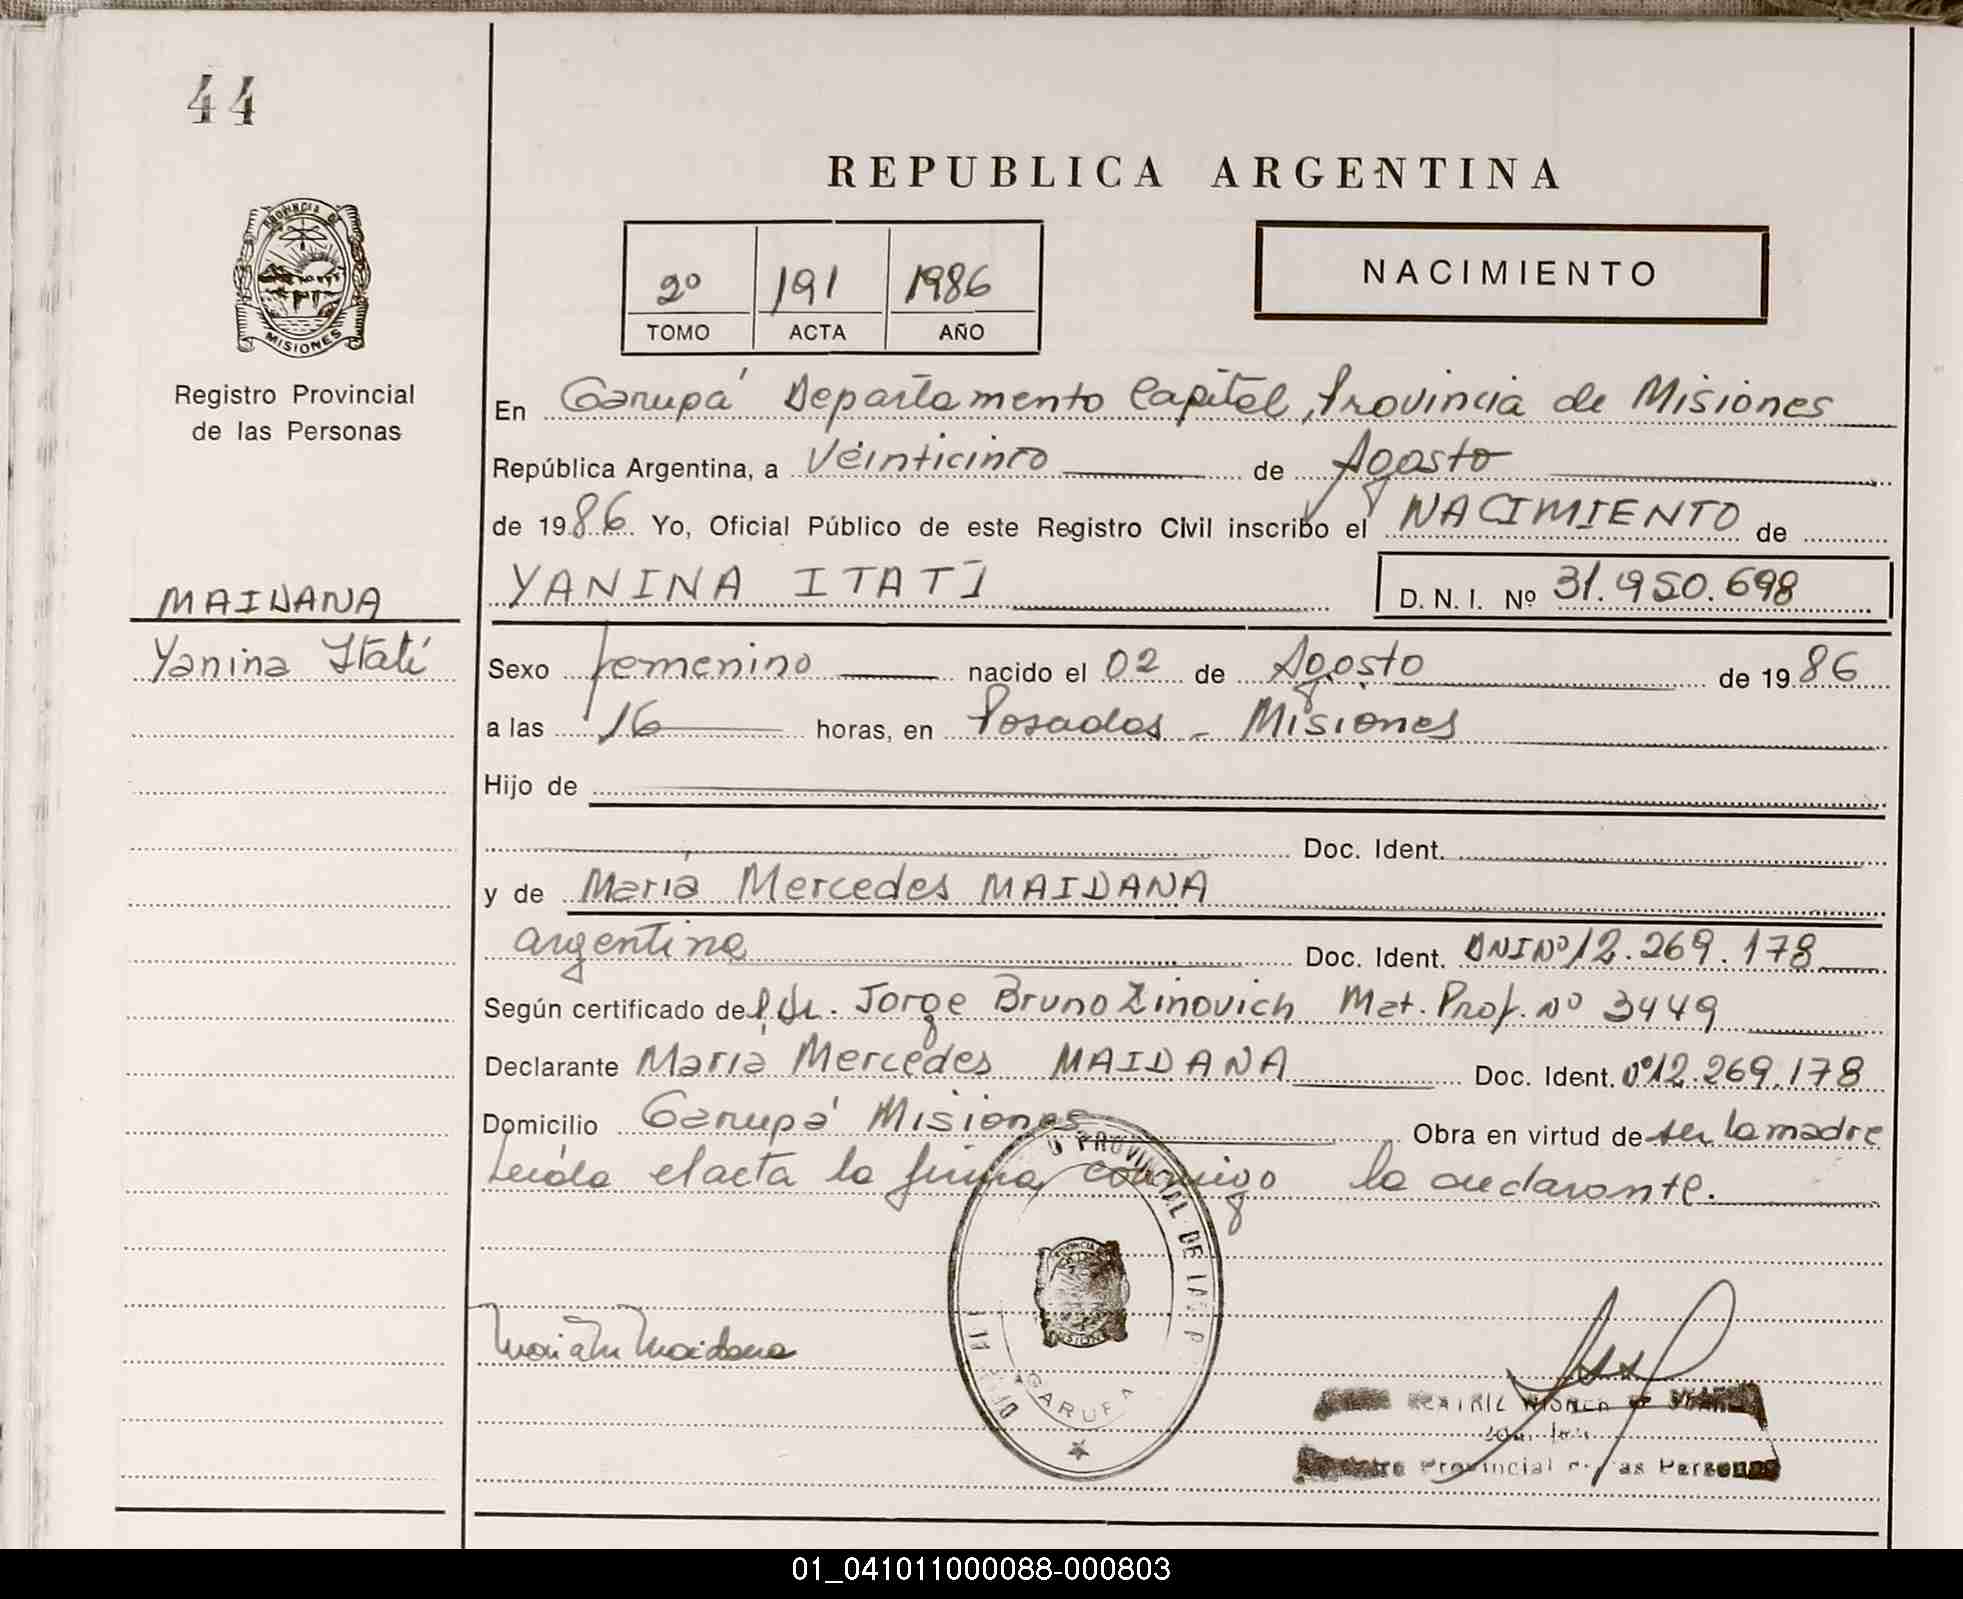 44
REPUBLICA ARGENTINA
PROVINCIA DE
MISIONES
2º 191 1986
TOMO ACTA AÑO
NACIMIENTO
Registro Provincial
de las Personas
En Garupá Departamento Capital, Provincia de Misiones
República Argentina, a Veinticinco de Agosto
de 1986. Yo, Oficial Público de este Registro Civil inscribo el NACIMIENTO de
MAIDANA
YANINA ITATÍ D. N. I. Nº 31.950.698
Yanina Itatí
Sexo femenino nacido el 02 de Agosto de 1986
a las 16 horas, en Posadas - Misiones
Hijo de
Doc. Ident.
y de María Mercedes MAIDANA
argentina Doc. Ident. DNI Nº 12.269.178
Según certificado de Dr. Jorge Bruno Zinovich Mat. Prof. Nº 3449
Declarante María Mercedes MAIDANA Doc. Ident. Nº 12.269.178
Domicilio Garupá Misiones Obra en virtud de ser la madre
Leída el acta la firma conmigo la declarante.
PROVINCIAL DE LAS P
GARUPA
Maidana
Provincial as Personas
01_041011000088-000803